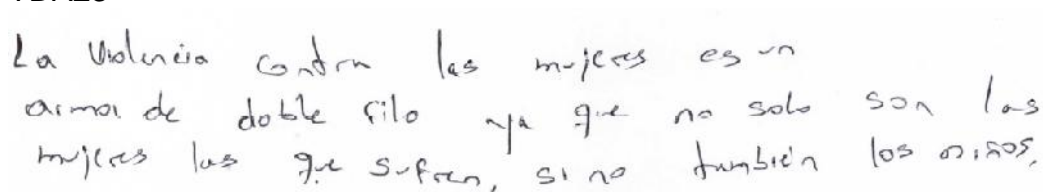 La Violencia contra las mujeres es un
arma de doble filo ya que no solo son las
mujeres las que sufren, si no también los niños.